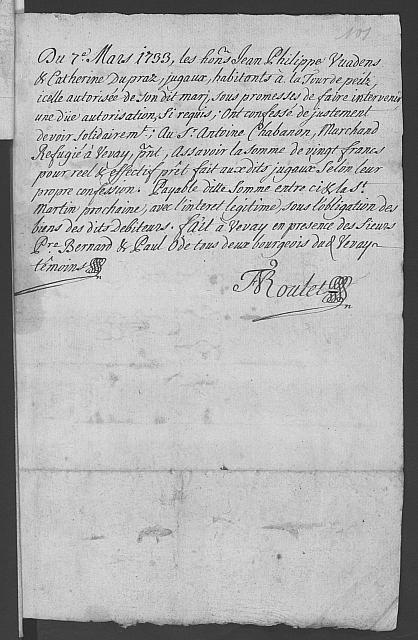 101
Du 7.e Mars 1733, les hon.s Jean Philippe Vuadens
& Catherine Dupraz, jugaux, habitants à la Tour de peilz,
icelle autorisée de son dit mari, sous promesses de faire intervenir
une düe autorisation, si requis; Ont confessé de justement
devoir solidairem.t; Au S.r Antoine Chabanon, Marchand
Refugié à Vevay, pñt, Assavoir la somme de vingt francs
pour réel & effectif prêt fait auxdits jugaux selon leur
propre confession. Payable ditte somme entre ci & la S.t
Martin prochaine, avec l'interet legitime, sous l'obligation des
biens des dits debiteurs. fait à Vevay en presence des Sieurs
Pre Bernard & Paul Ode tous deux bourgeois de Vevay
témoins
Roulet